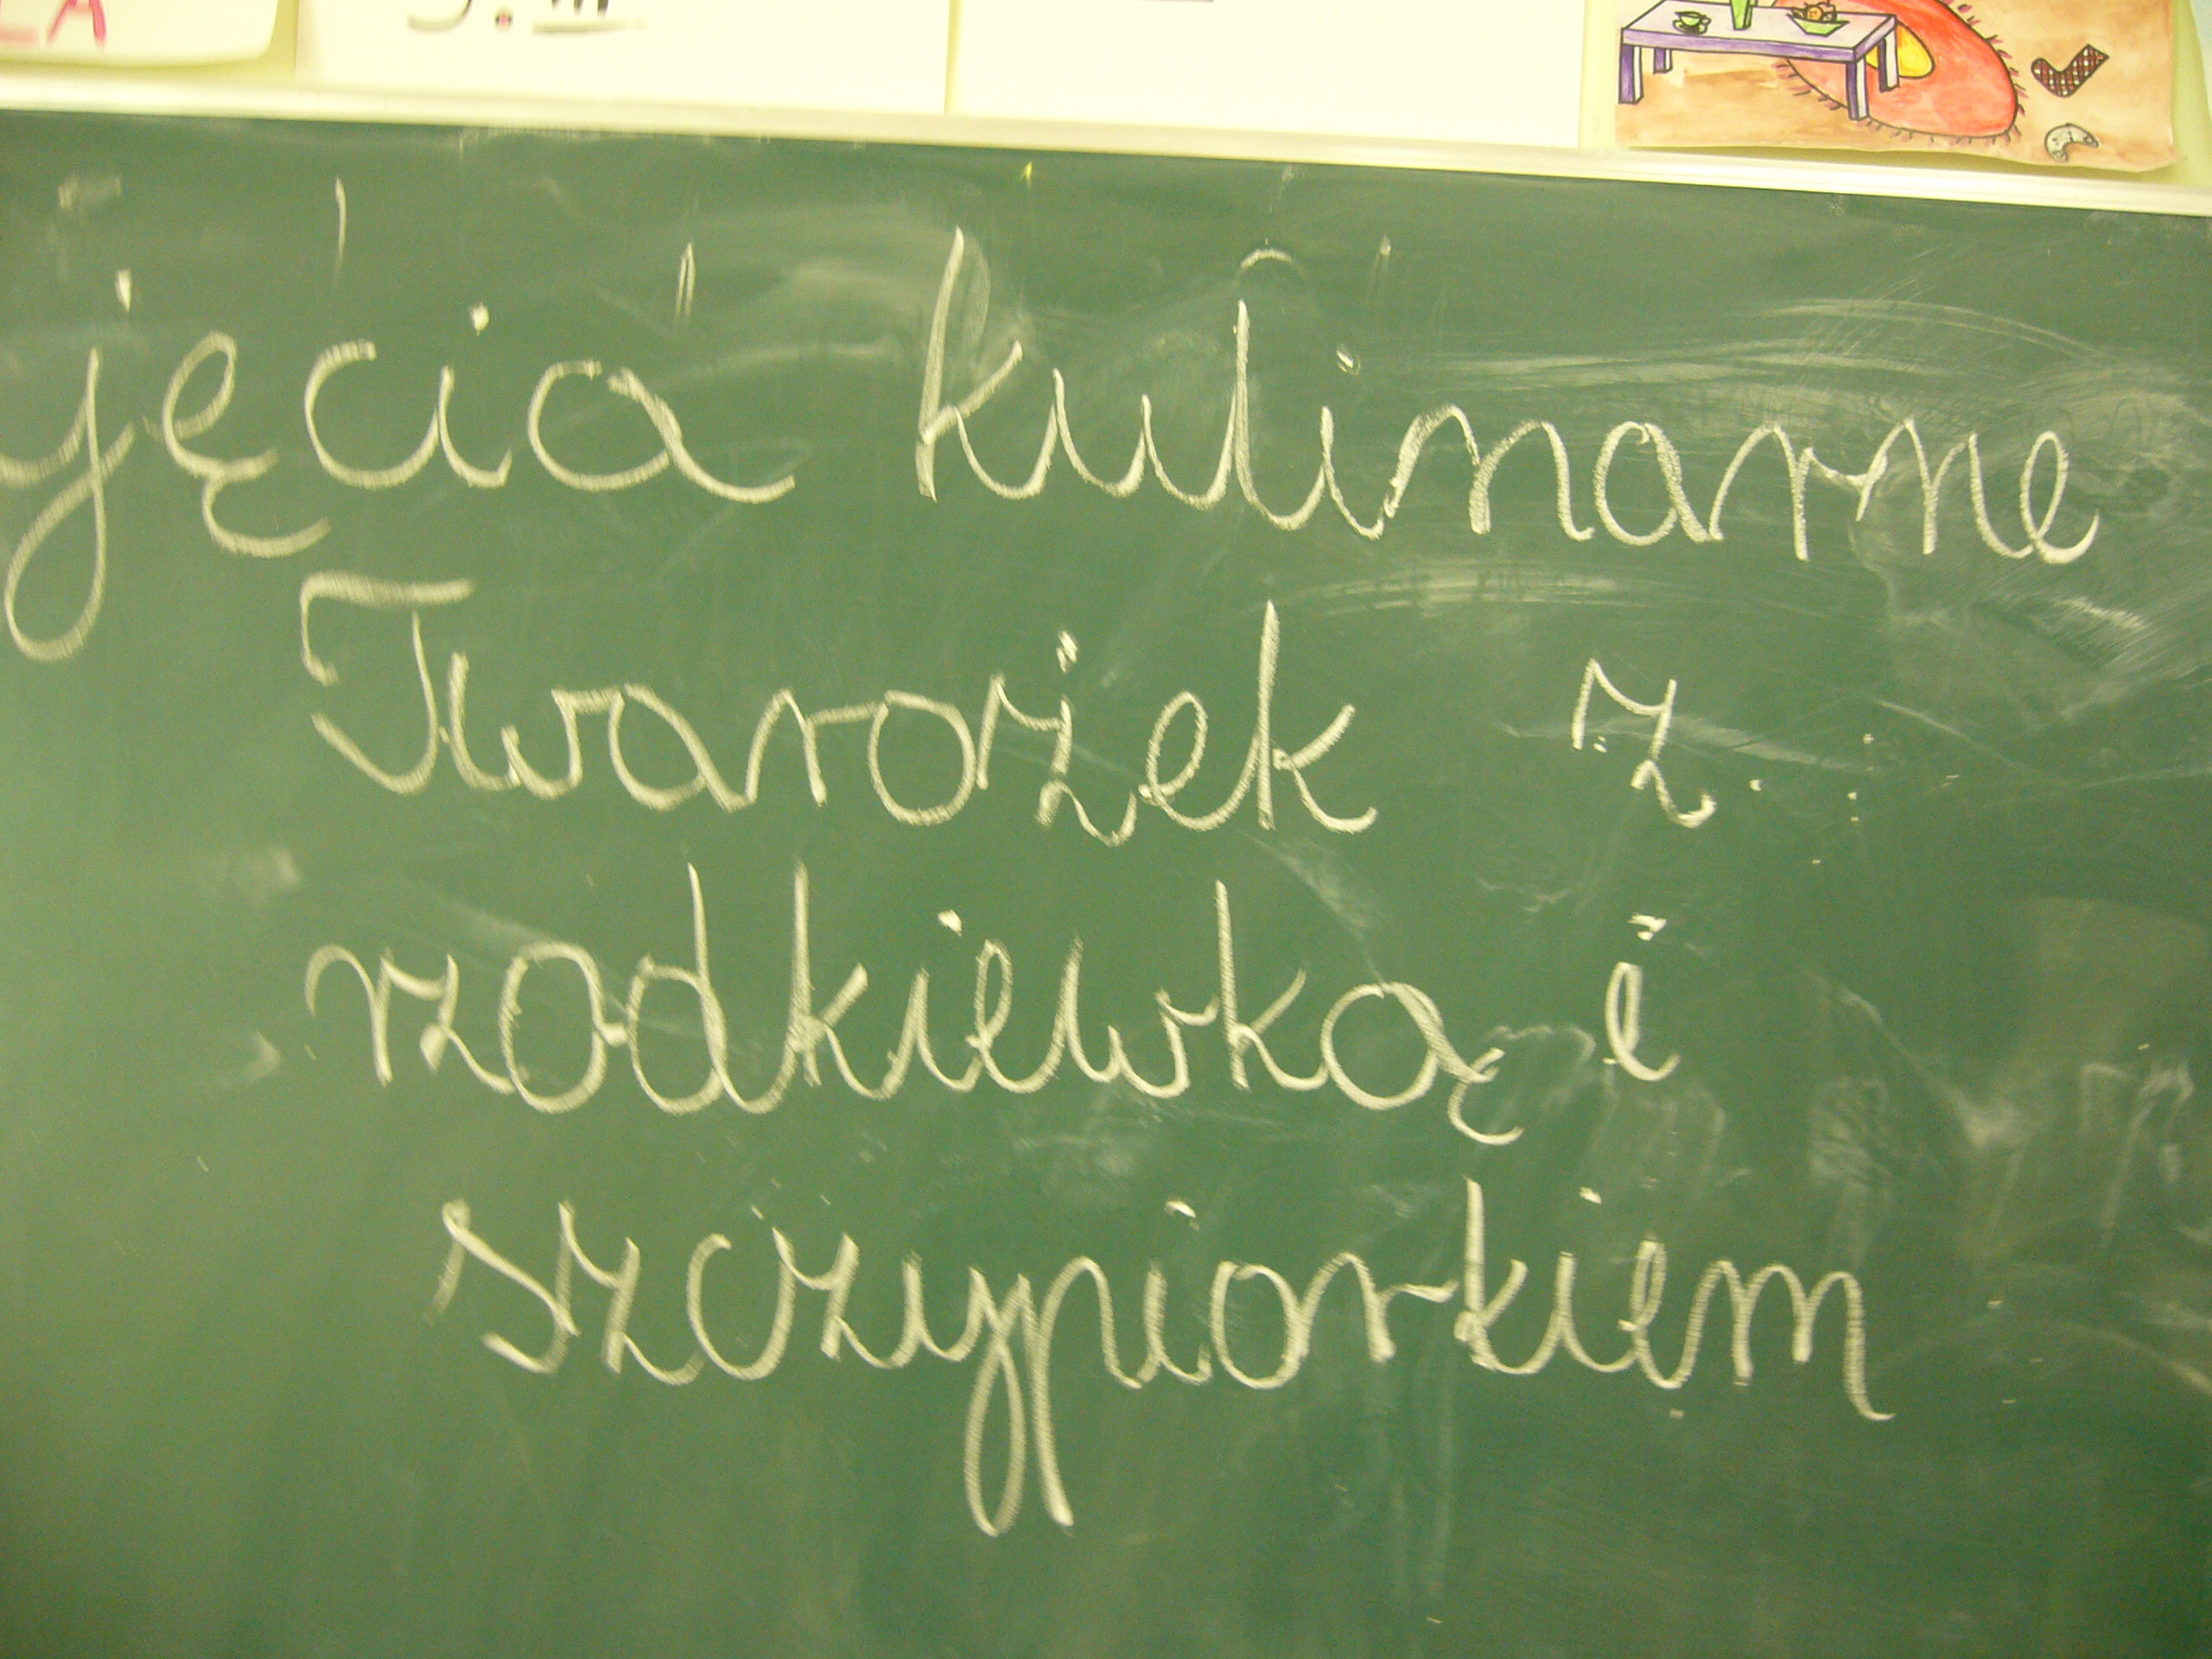 jęcia kulinarne
Twarożek z
rzodkiewką i
szczypiorkiem